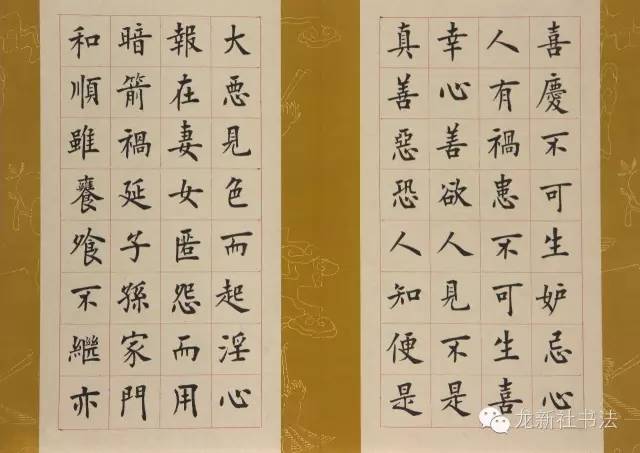 喜慶不可生妒忌心
人有禍患不可生喜
幸心善欲人見不是
真善惡恐人知便是
大惡見色而起淫心
報在妻女匿怨而用
暗箭禍延子孫家門
和順雖饔飧不繼亦
龙新社书法